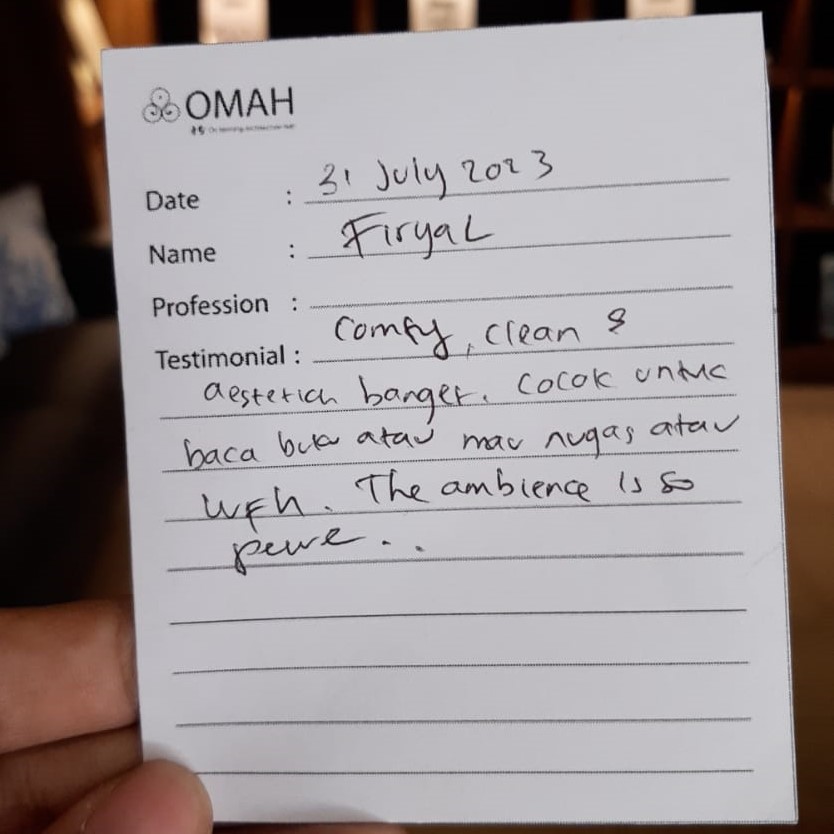 OMAH
Date : 31 July 2023
Name : Firyal
Profession :
Testimonial : Comfy, clean &
aesterich banget. Cocok untuk
baca buku atau mau nugas atau
WFH. The ambience is so
pewe..